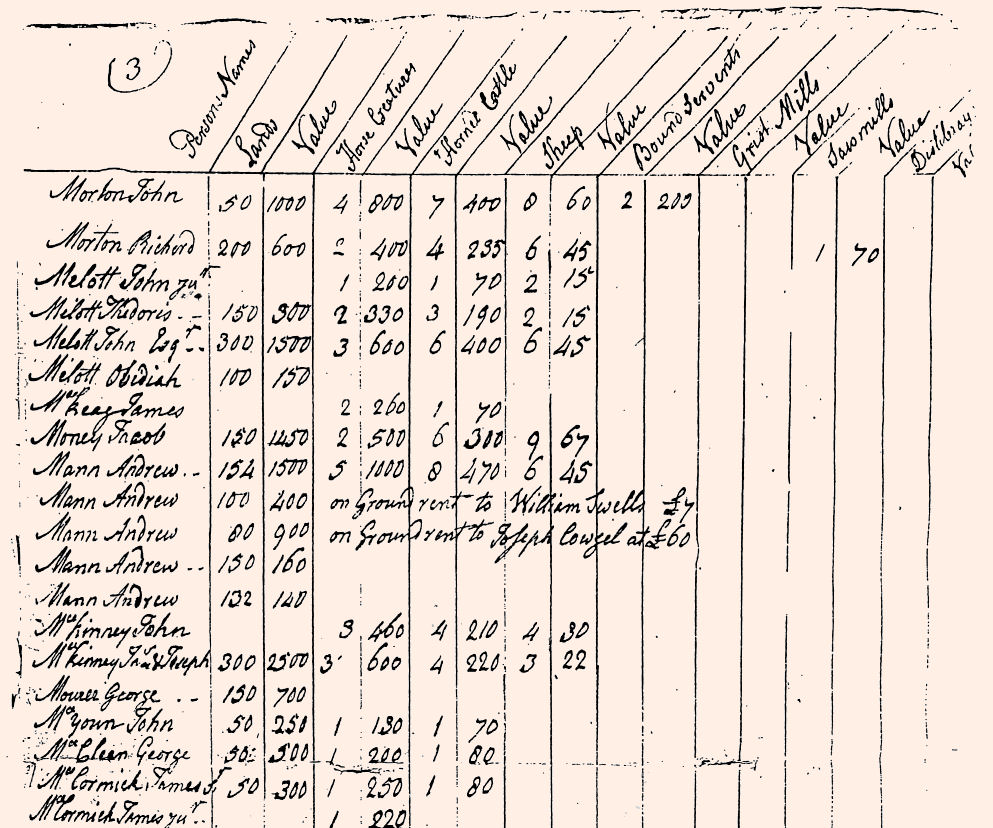 3
Persons Names Lands Value Horse Creatures Value Hornie Cattle Value Sheep Value Bound Servents Value Grist Mills Value Sawmills Value Distilray Val
Morton John 50 1000 4 800 7 400 8 60 2 200
Morton Richord 200 600 2 400 4 235 6 45 1 70
Melott John jur 1 200 1 70 2 15
Melott Thedoris -- 150 300 2 330 3 190 2 15
Melott John Esqr -- 300 1500 3 600 6 400 6 45
Melott Obidiah 100 150
McKeag James 2 260 1 70
Money Jacob 150 1450 2 500 6 300 9 67
Mann Andrew -- 154 1500 5 1000 8 470 6 45
Mann Andrew 100 400 on Ground rent to William Swells £7
Mann Andrew 80 900 on Ground rent to Joseph Cowgel at £60
Mann Andrew -- 150 160
Mann Andrew 132 140
McKinney John 3 460 4 210 4 30
McKinney Jas & Joseph 300 2500 3 600 4 220 3 22
Mourer George -- 150 700
McYoun John 50 250 1 130 1 70
McCleen George 50 500 1 200 1 80
McCormick James Sr 50 300 1 250 1 80
McCormick James jur -- 1 220